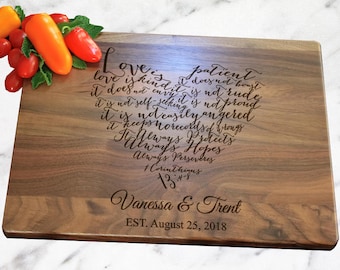 Love is patient
love is kind it does not boast
it does not envy it is not rude
it is not self-seeking it is not proud
it is not easily angered
it keeps no record of wrongs
It Always Protects
Always Hopes
Always Perseveres
1 Corinthians
13:4-7
Vanessa & Trent
EST. August 25, 2018